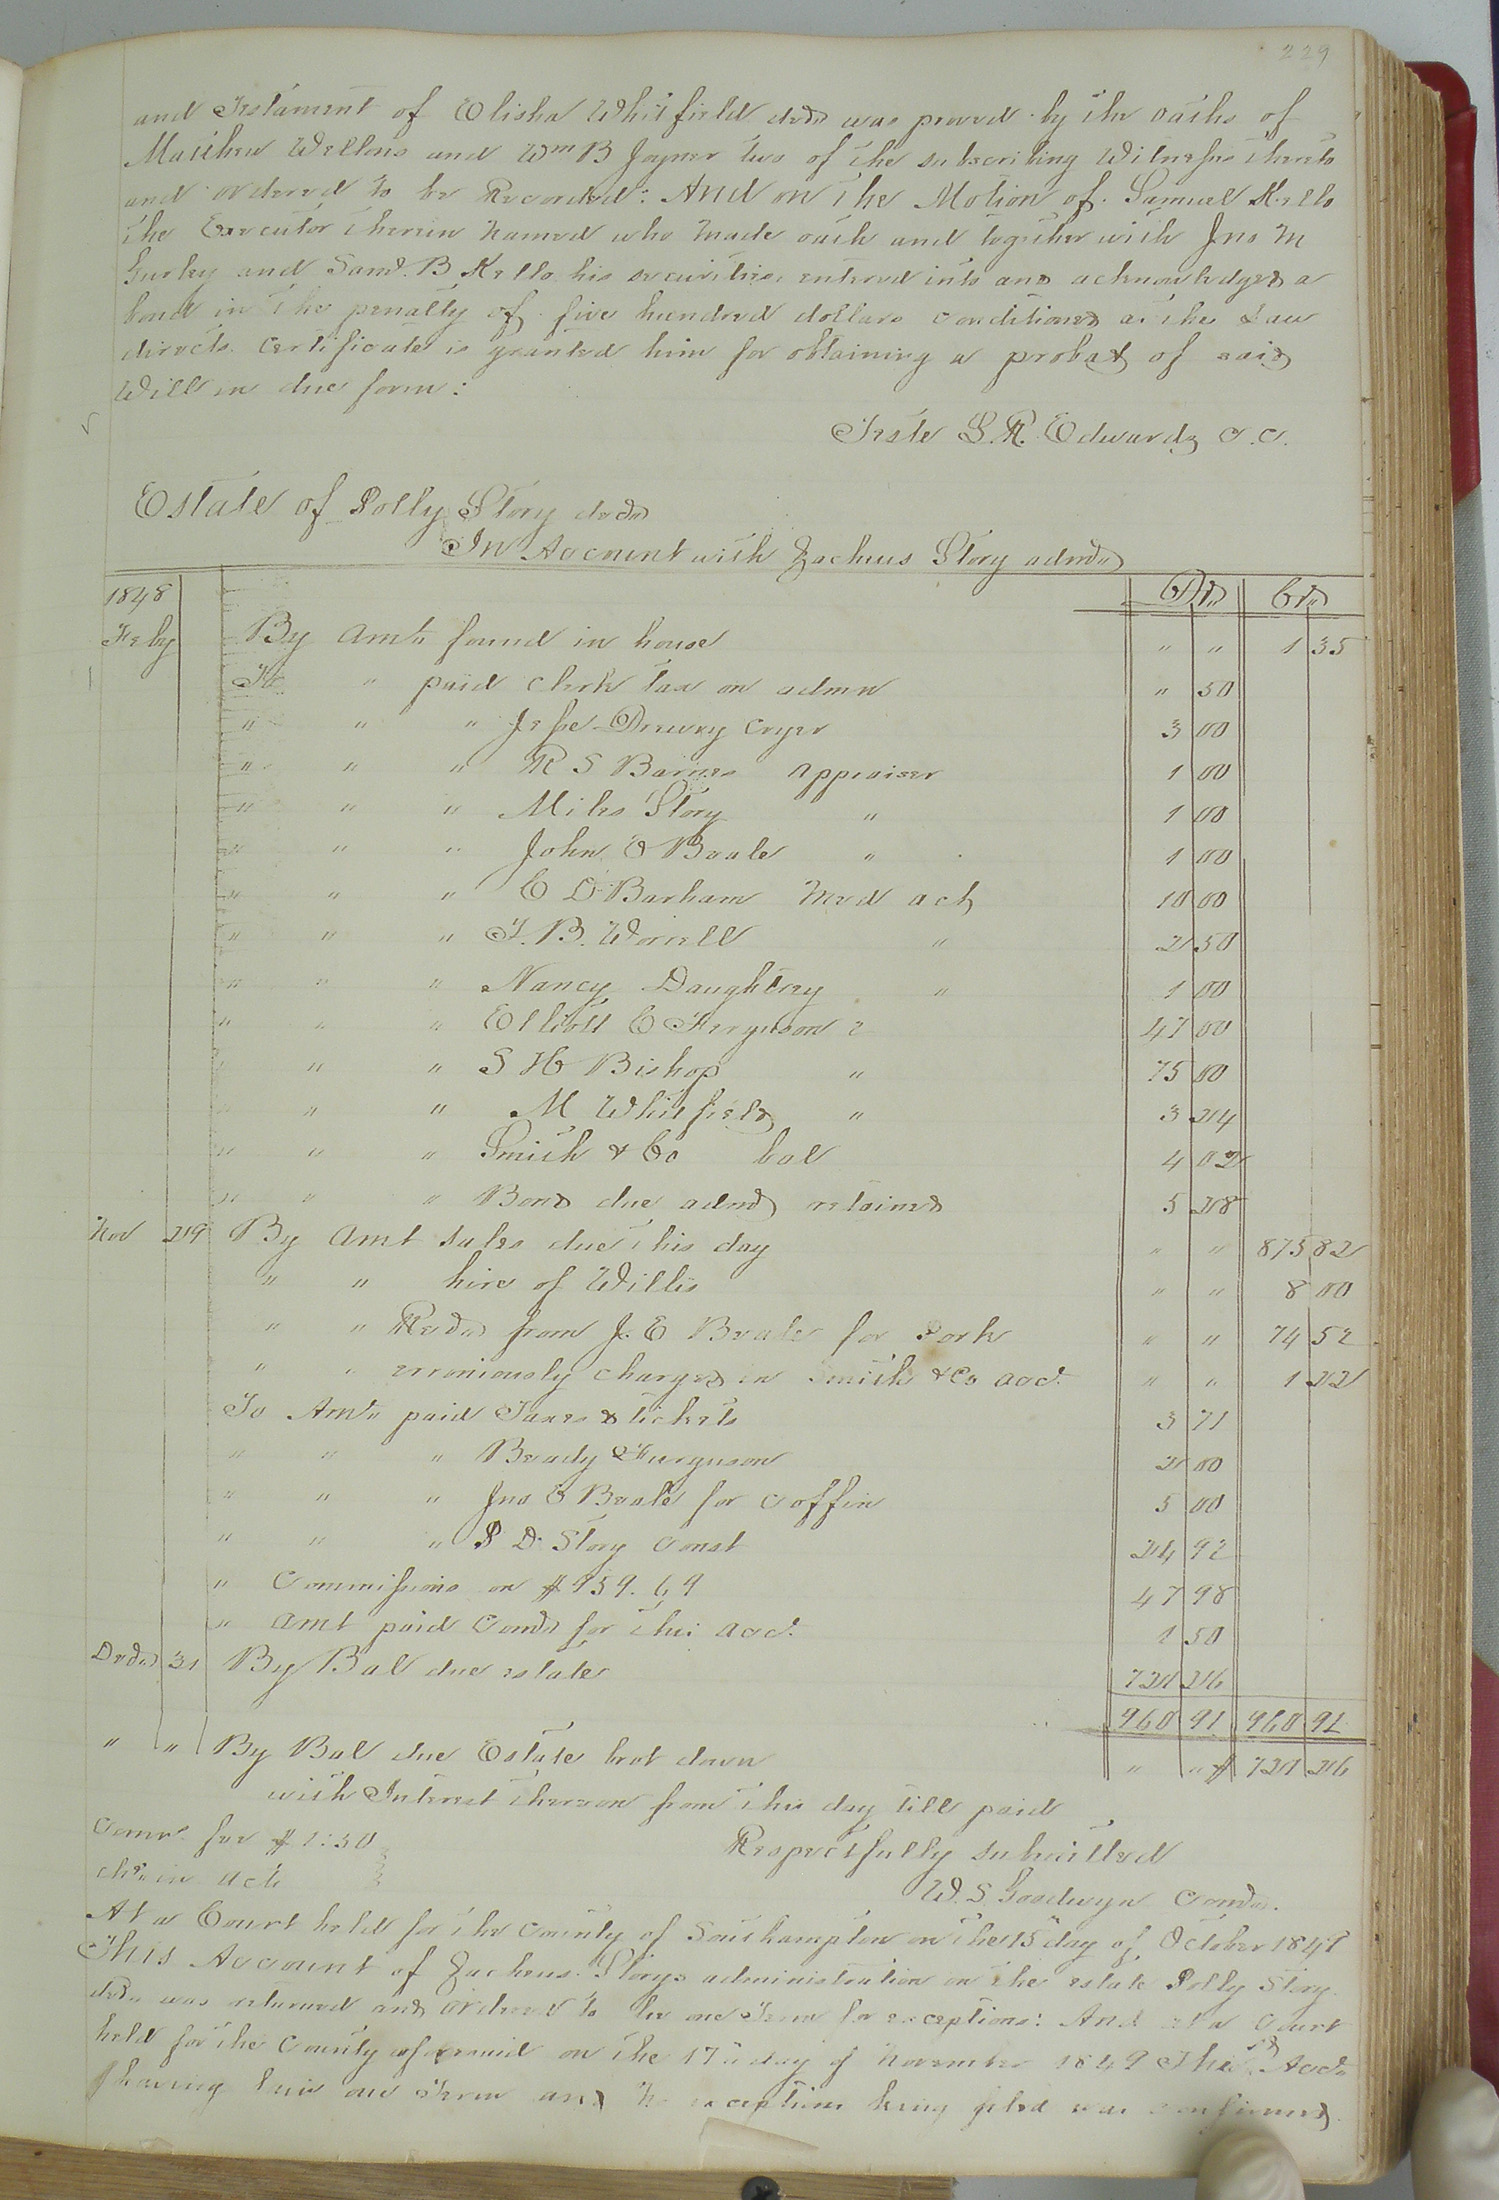 229
and Testament of Elisha Whitfield decd was proved by the oaths of
Matthew Wellons and Wm B Joyner two of the subscribing Witnesses thereto
and ordered to be Recorded: And on the Motion of Samuel Kello
the Executor therein named who made oath and together with Jno M
Gurley and Saml. B Kello his securities entered into and acknowledged a
bond in the penalty of five hundred dollars conditioned as the Law
directs Certificate is granted him for obtaining a probat of said
Will in due form:
Teste L. R. Edwards C.C.
Estate of Polly Story decd
In Account with Zacheus Story admr
1848 Dr Cr
Feby By Amt found in house " " 1 35
To " paid clerk tax on admn " 50
" " " Jesse Drewry Cryer 3 00
" " " R S Barnes Appraiser 1 00
" " " Miles Story " 1 00
" " " John E Beale " 1 00
" " " C D Barham Med act 10 00
" " " T. B. Worrell " 2 50
" " " Nancy Daughtrey " 1 00
" " " Elliott C Ferguson " 47 00
" " " S H Bishop " 75 00
" " " M Whitfield " 3 24
" " " Smith & Co bal 4 02
" " " Bond due admr retained 5 28
Nov 29 By Amt sales due this day " " 875 82
" " hire of Willis " " 8 00
" " Recd from J. E Beale for Pork " " 74 52
" " erroniously charged in Smith & Co acct. " " 1 22
To Amt paid Taxes & tickets 3 71
" " " Beady Furguson 2 00
" " " Jno E Beale for coffin 5 00
" " " P D Story Const 24 92
" Commissions on $959.69 47 98
" amt paid Comr for this acct. 1 50
Decr 31 By Bal due estate 720 26
960 91 960 91
" " By Bal due Estate brot down " " $ 720 26
with Interest thereon from this day till paid
Comrs fee $1:50
chd in act
Respectfully submitted
W. S. Goodwyn Comr.
At a Court held for the County of Southampton on the 15 day of October 1849
This Account of Zacheus Storys administration on the estate Polly Story
decd was returned and ordered to lie one Term for exceptions: And at a Court
held for the County aforesaid on the 17th day of November 1849 The sd Acct
having lain one Term and no exceptions being filed was confirmed